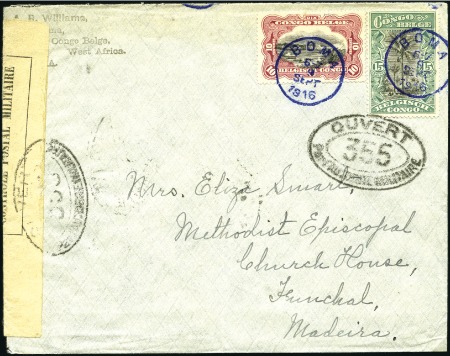 R. Williams,
ma,
Congo Belge,
West Africa.
CONGO BELGE
10 10
BELGISCH CONGO
BOMA
SEPT
1916
CONGO BELGE
15 15
BELGISCH CONGO
BOMA
CONTROLE POSTAL MILITAIRE
OUVERT
355
PAR AUTORITE MILITAIRE
355
Mrs. Eliza Smart,
Methodist Episcopal
Church House,
Funchal,
Madeira.